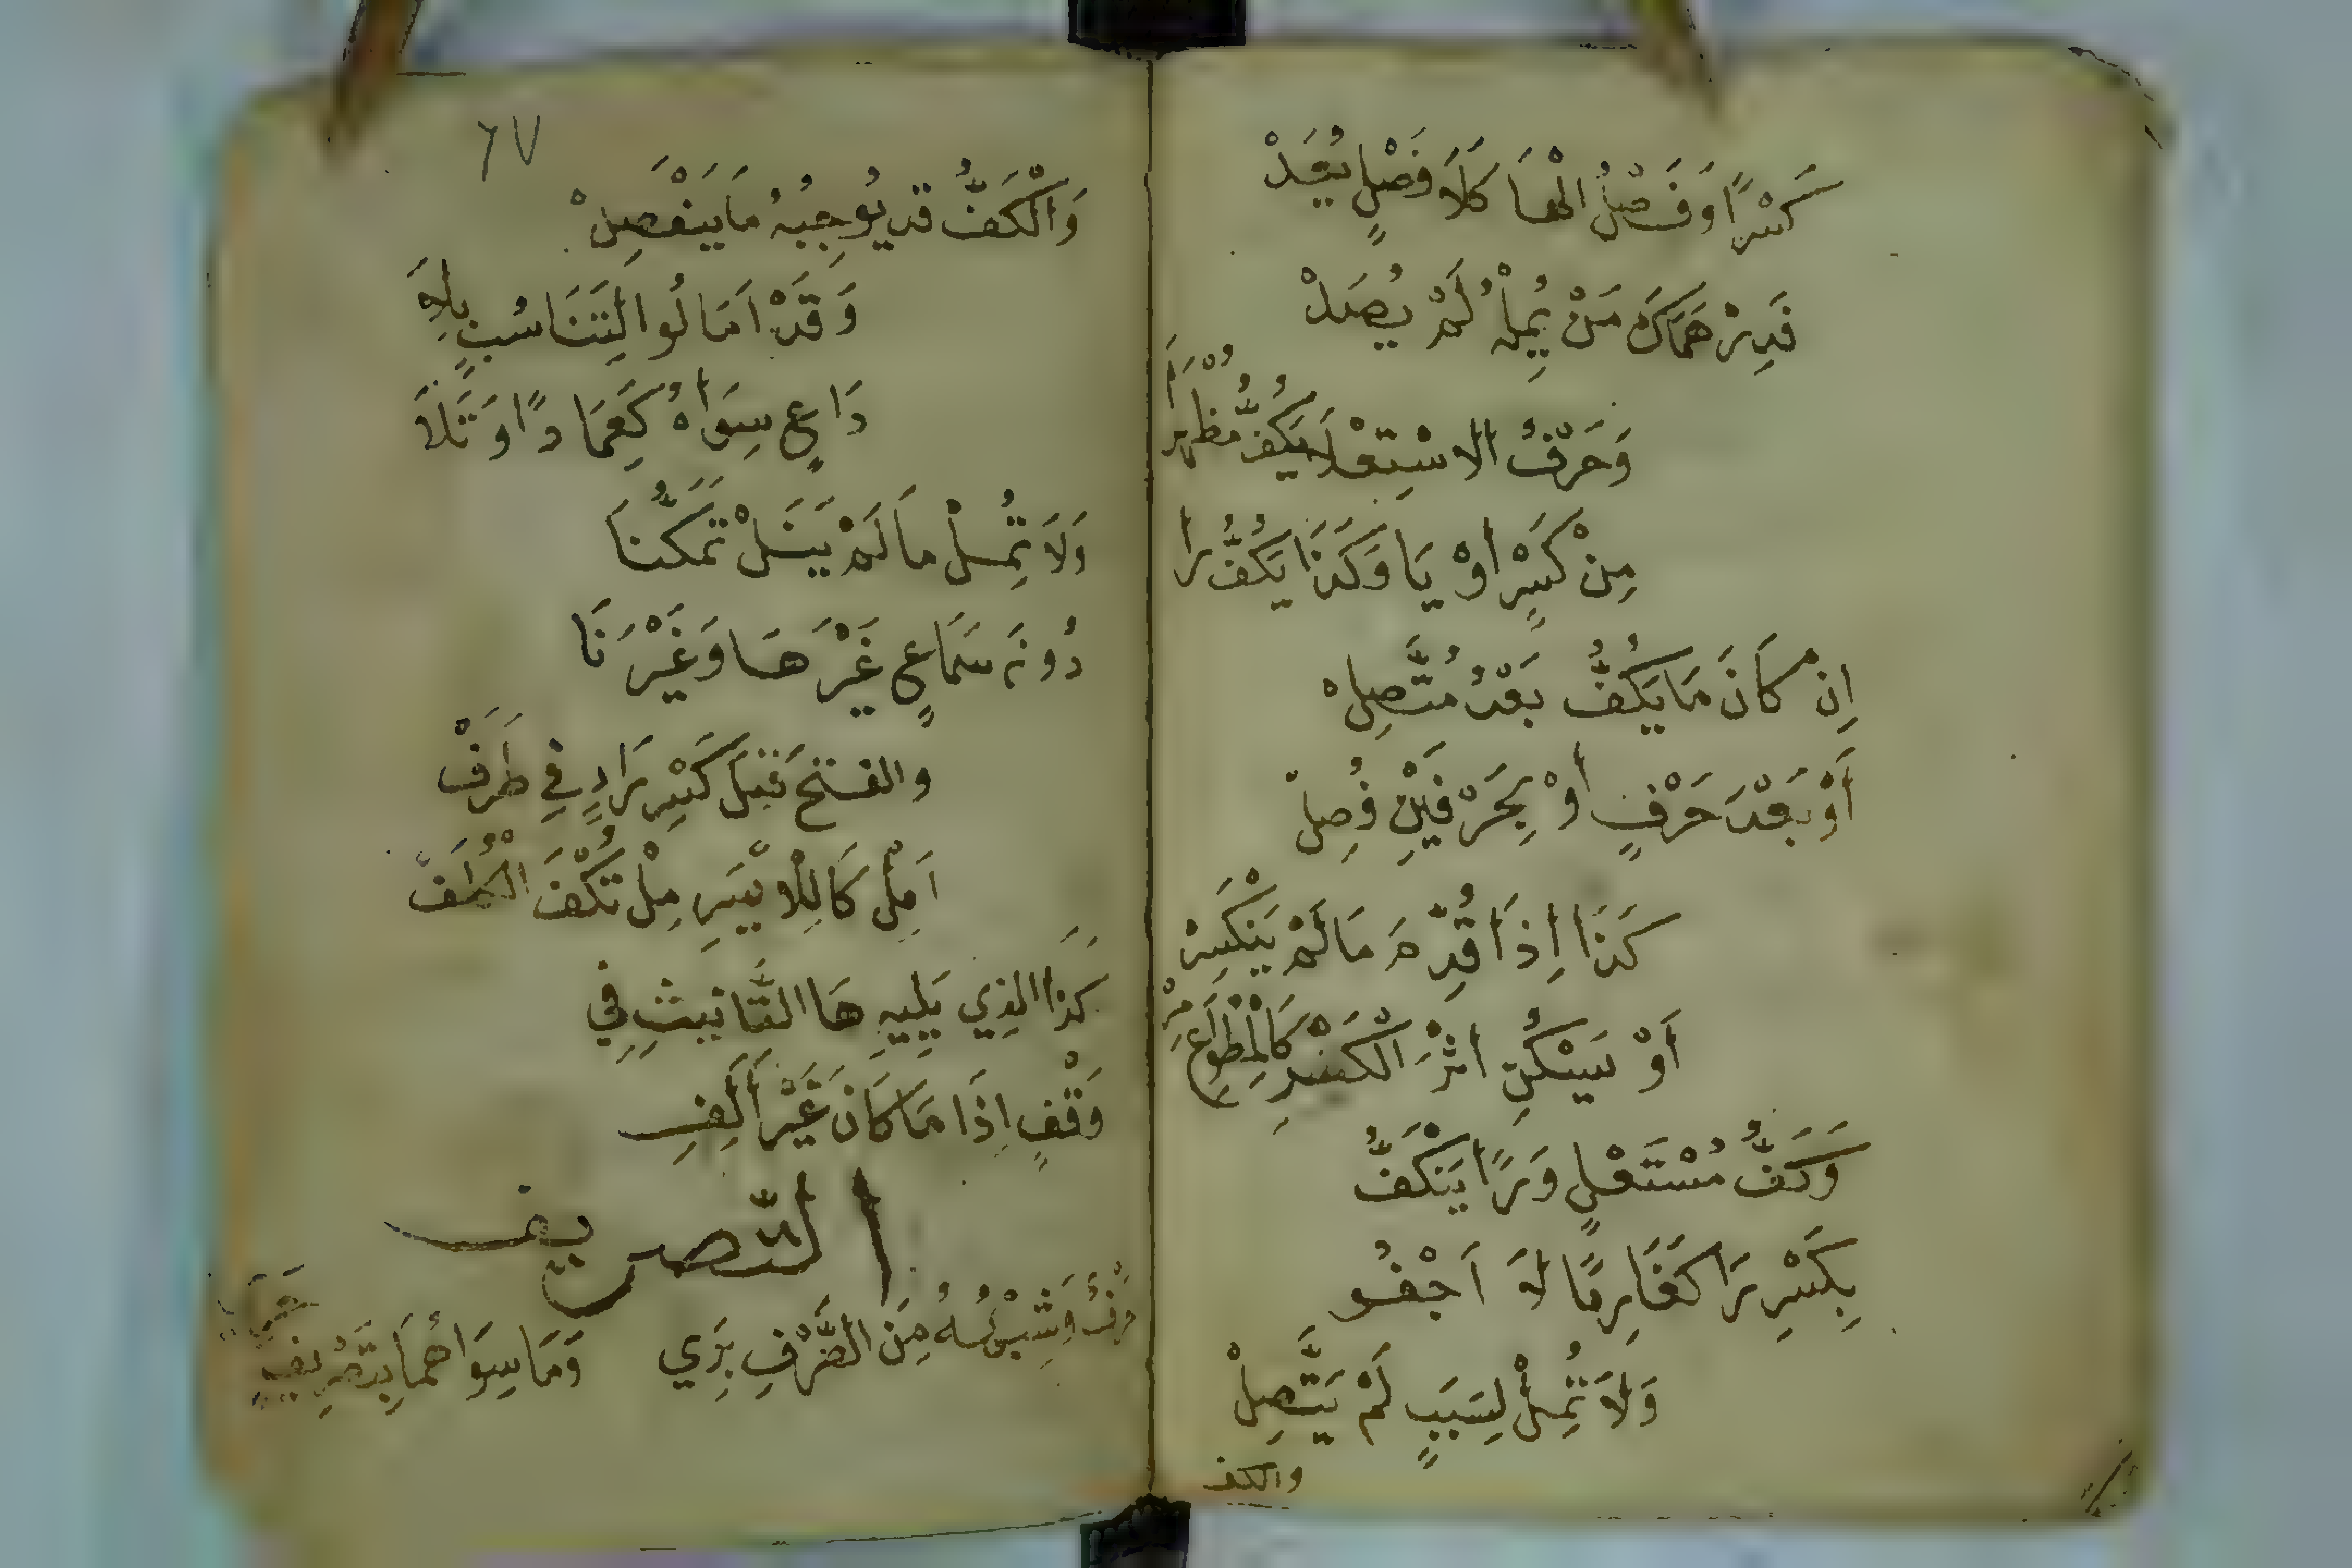 كَسْرًا وَفَصْلُ الْهَا كَلَا فَصْلٍ يُعَدْ
فَدِرْهَمَاكَ مَنْ يُمِلْهُ لَمْ يُصَدْ
وَحَرْفُ الاسْتِعْلَا يَكُفُّ مُظْهَرَا
مِنْ كَسْرٍ اوْ يَا وَكَذَا يَكُفُّ رَا
اِنْ كَانَ مَا يَكُفُّ بَعْدُ مُتَّصِلْ
أَوْ بَعْدَ حَرْفٍ اوْ بِحَرْفَيْنِ فُصِلْ
كَذَا اِذَا قُدِّمَ مَا لَمْ يَنْكَسِرْ
أَوْ يَسْكُنِ اثْرَ الْكَسْرِ كَالْمِطْوَاعِ مِرْ
وَكَفُّ مُسْتَعْلٍ وَرًا يَنْكَفُّ
بِكَسْرِ رَا كَغَارِمًا لَا اَجْفُو
وَلَا تُمِلْ لِسَبَبٍ لَمْ يَتَّصِلْ
والكف
٦٧
وَالْكَفُّ قد يُوجِبُهُ مَا يَنْفَصِلْ
وَقَدْ اَمَالُوا لِتَنَاسُبٍ بِلَا
دَاعٍ سِوَاهُ كَعِمَادًا وَتَلَا
وَلَا تُمِلْ مَا لَمْ يَنَلْ تَمَكُّنَا
دُونَ سَمَاعٍ غَيْرَ هَا وَغَيْرَ نَا
والفتح قَبْلَ كَسْرِ رَاءٍ فِي طَرَفْ
اَمِلْ كَالِلْايْسَرِ مِلْ تُكْفَ الْكُلَفْ
كَذَا الذِي يَلِيهِ هَا التَّانِيثِ فِي
وَقْفٍ اِذَا مَا كَانَ غَيْرَ أَلِفِ
التّصريف
حَرْفٌ وَشِبْهُهُ مِنَ الصَّرْفِ بَرِي وَمَا سِوَاهُمَا بِتَصْرِيفٍ حَرِي